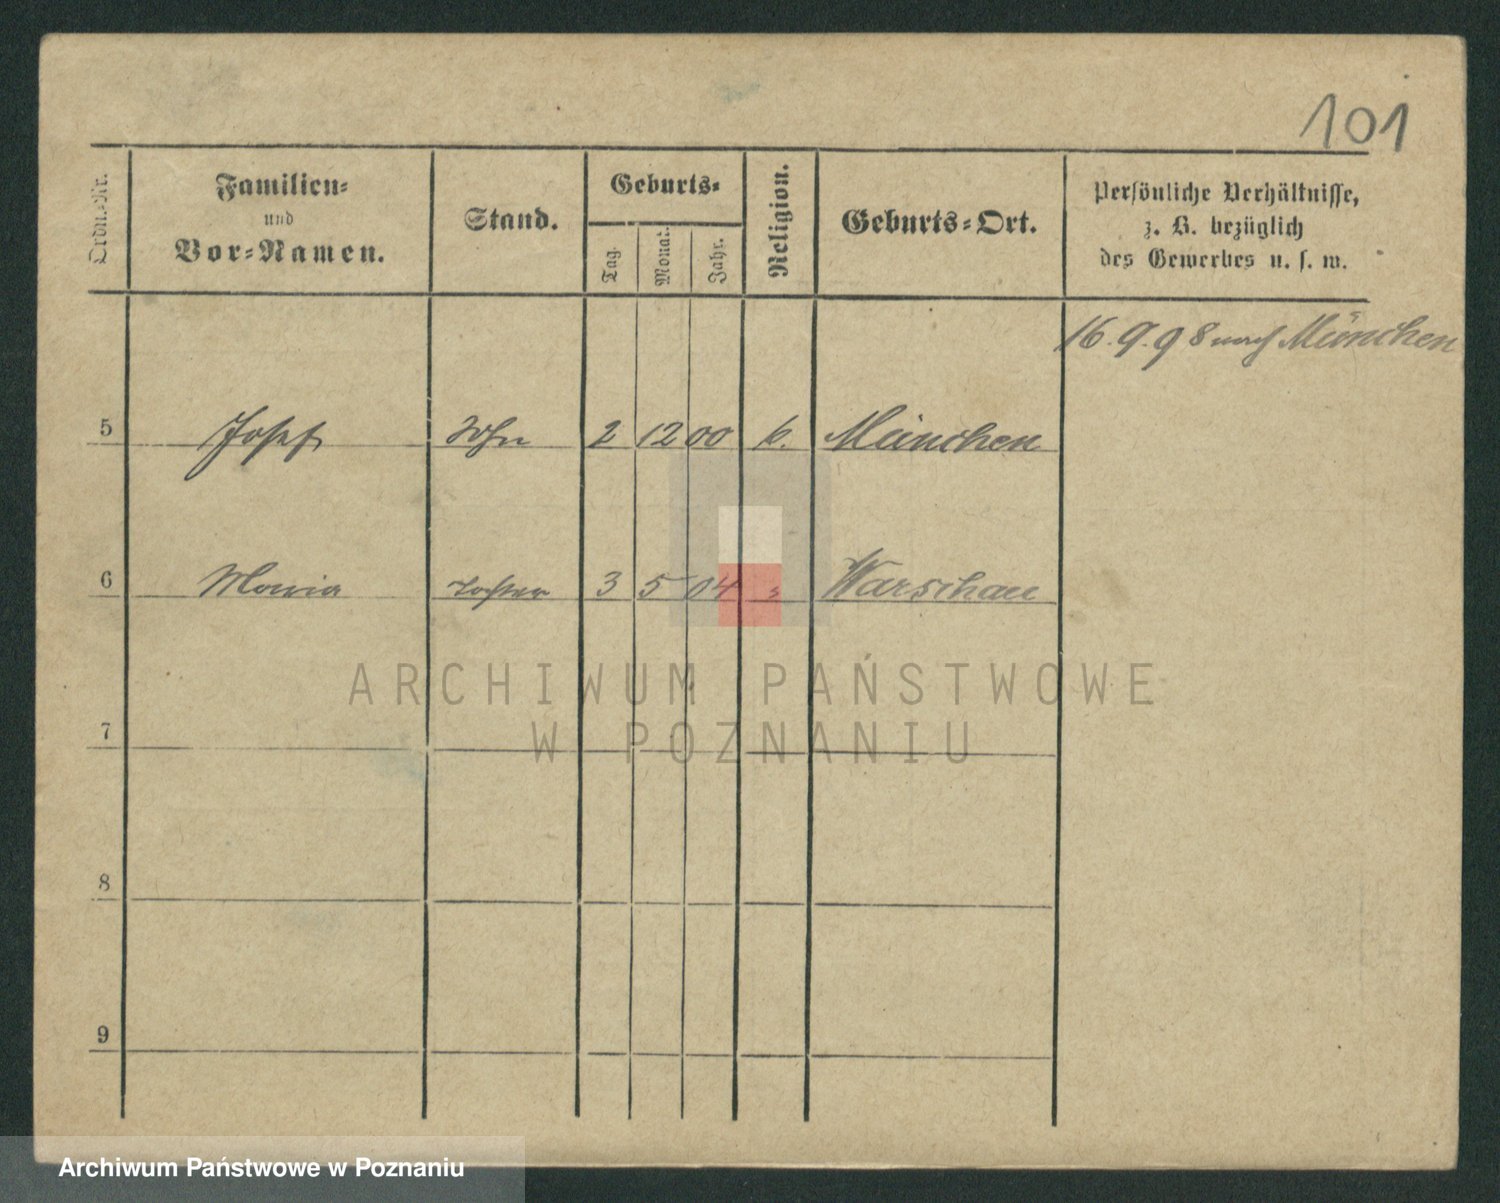 101
Ordn.-Nr.
Familien-
und
Vor-Namen.
Stand.
Geburts-
Tag.
Monat.
Jahr.
Religion.
Geburts-Ort.
Persönliche Verhältnisse,
z. B. bezüglich
des Gewerbes u. s. w.
16.9.98 nach München
5 Josef Sohn 2 12 00 k. München
6 Maria Tochter 3 5 04 " Warschau
7
8
9
ARCHIWUM PAŃSTWOWE
W POZNANIU
Archiwum Państwowe w Poznaniu